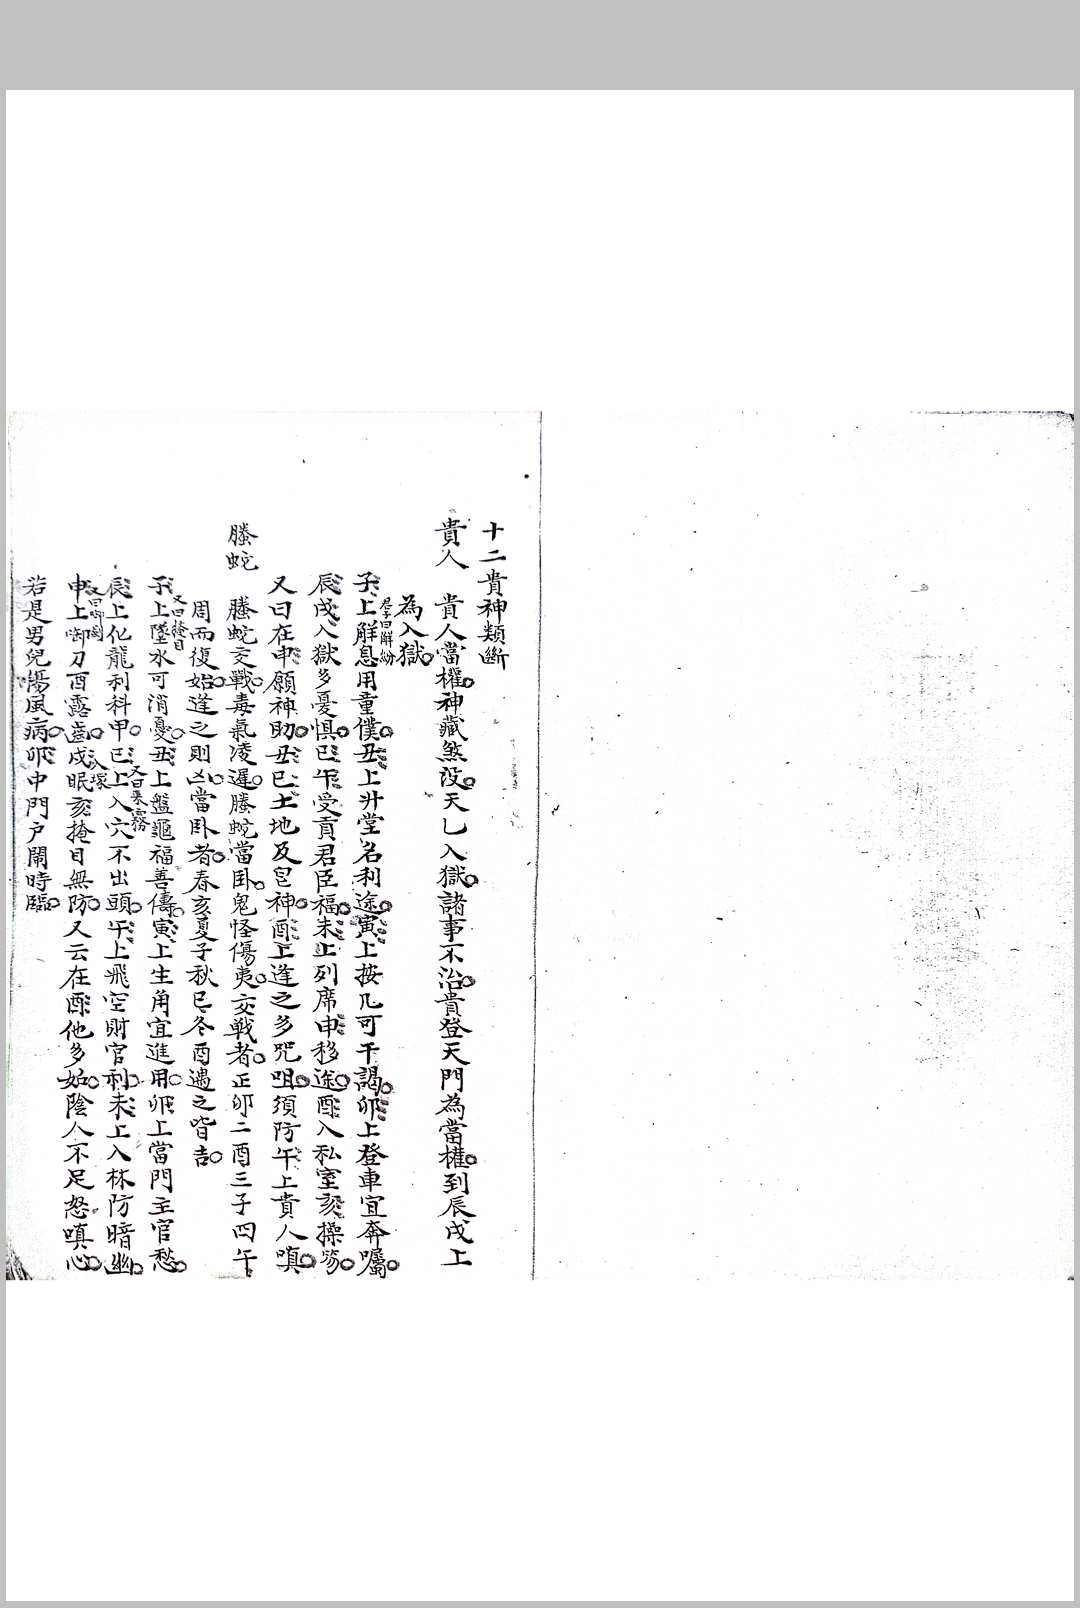 十二貴神類斷
貴人　貴人當權○神藏煞没○天乙入獄○諸事不治○貴登天門為當權○到辰戌上
為入獄○
子上解息用童僕○丑上升堂名利途○寅上按几可干謁○卯上登車宜奔囑○
子曰解紛
辰戌入獄多憂惧○巳午受貢君臣福○未上列席申移途○酉入私室亥操笏○
又曰在申願神助○丑巳土地及皂神○酉上逢之多咒咀○須防午上貴人嗔○
螣蛇　螣蛇交戰○毒氣凌遲○螣蛇當卧○鬼怪傷夷○交戰者○正卯二酉三子四午
周而復始○逢之則凶○當卧者○春亥夏子秋巳冬酉遇之皆吉○
子上墜水可消憂○丑上盤龜福善儔○寅上生角宜進用○卯上當門主官愁○
又曰掩目
辰上化龍利科甲○巳上入穴不出頭○午上飛空財官利○未上入林防暗幽○
又曰乘霧
申上啣刀酉露齒○戌眠亥掩目無防○又云在酉他多如○陰人不足怒嗔心○
入塚
若是男兒傷風病○卯中門户鬧時臨○